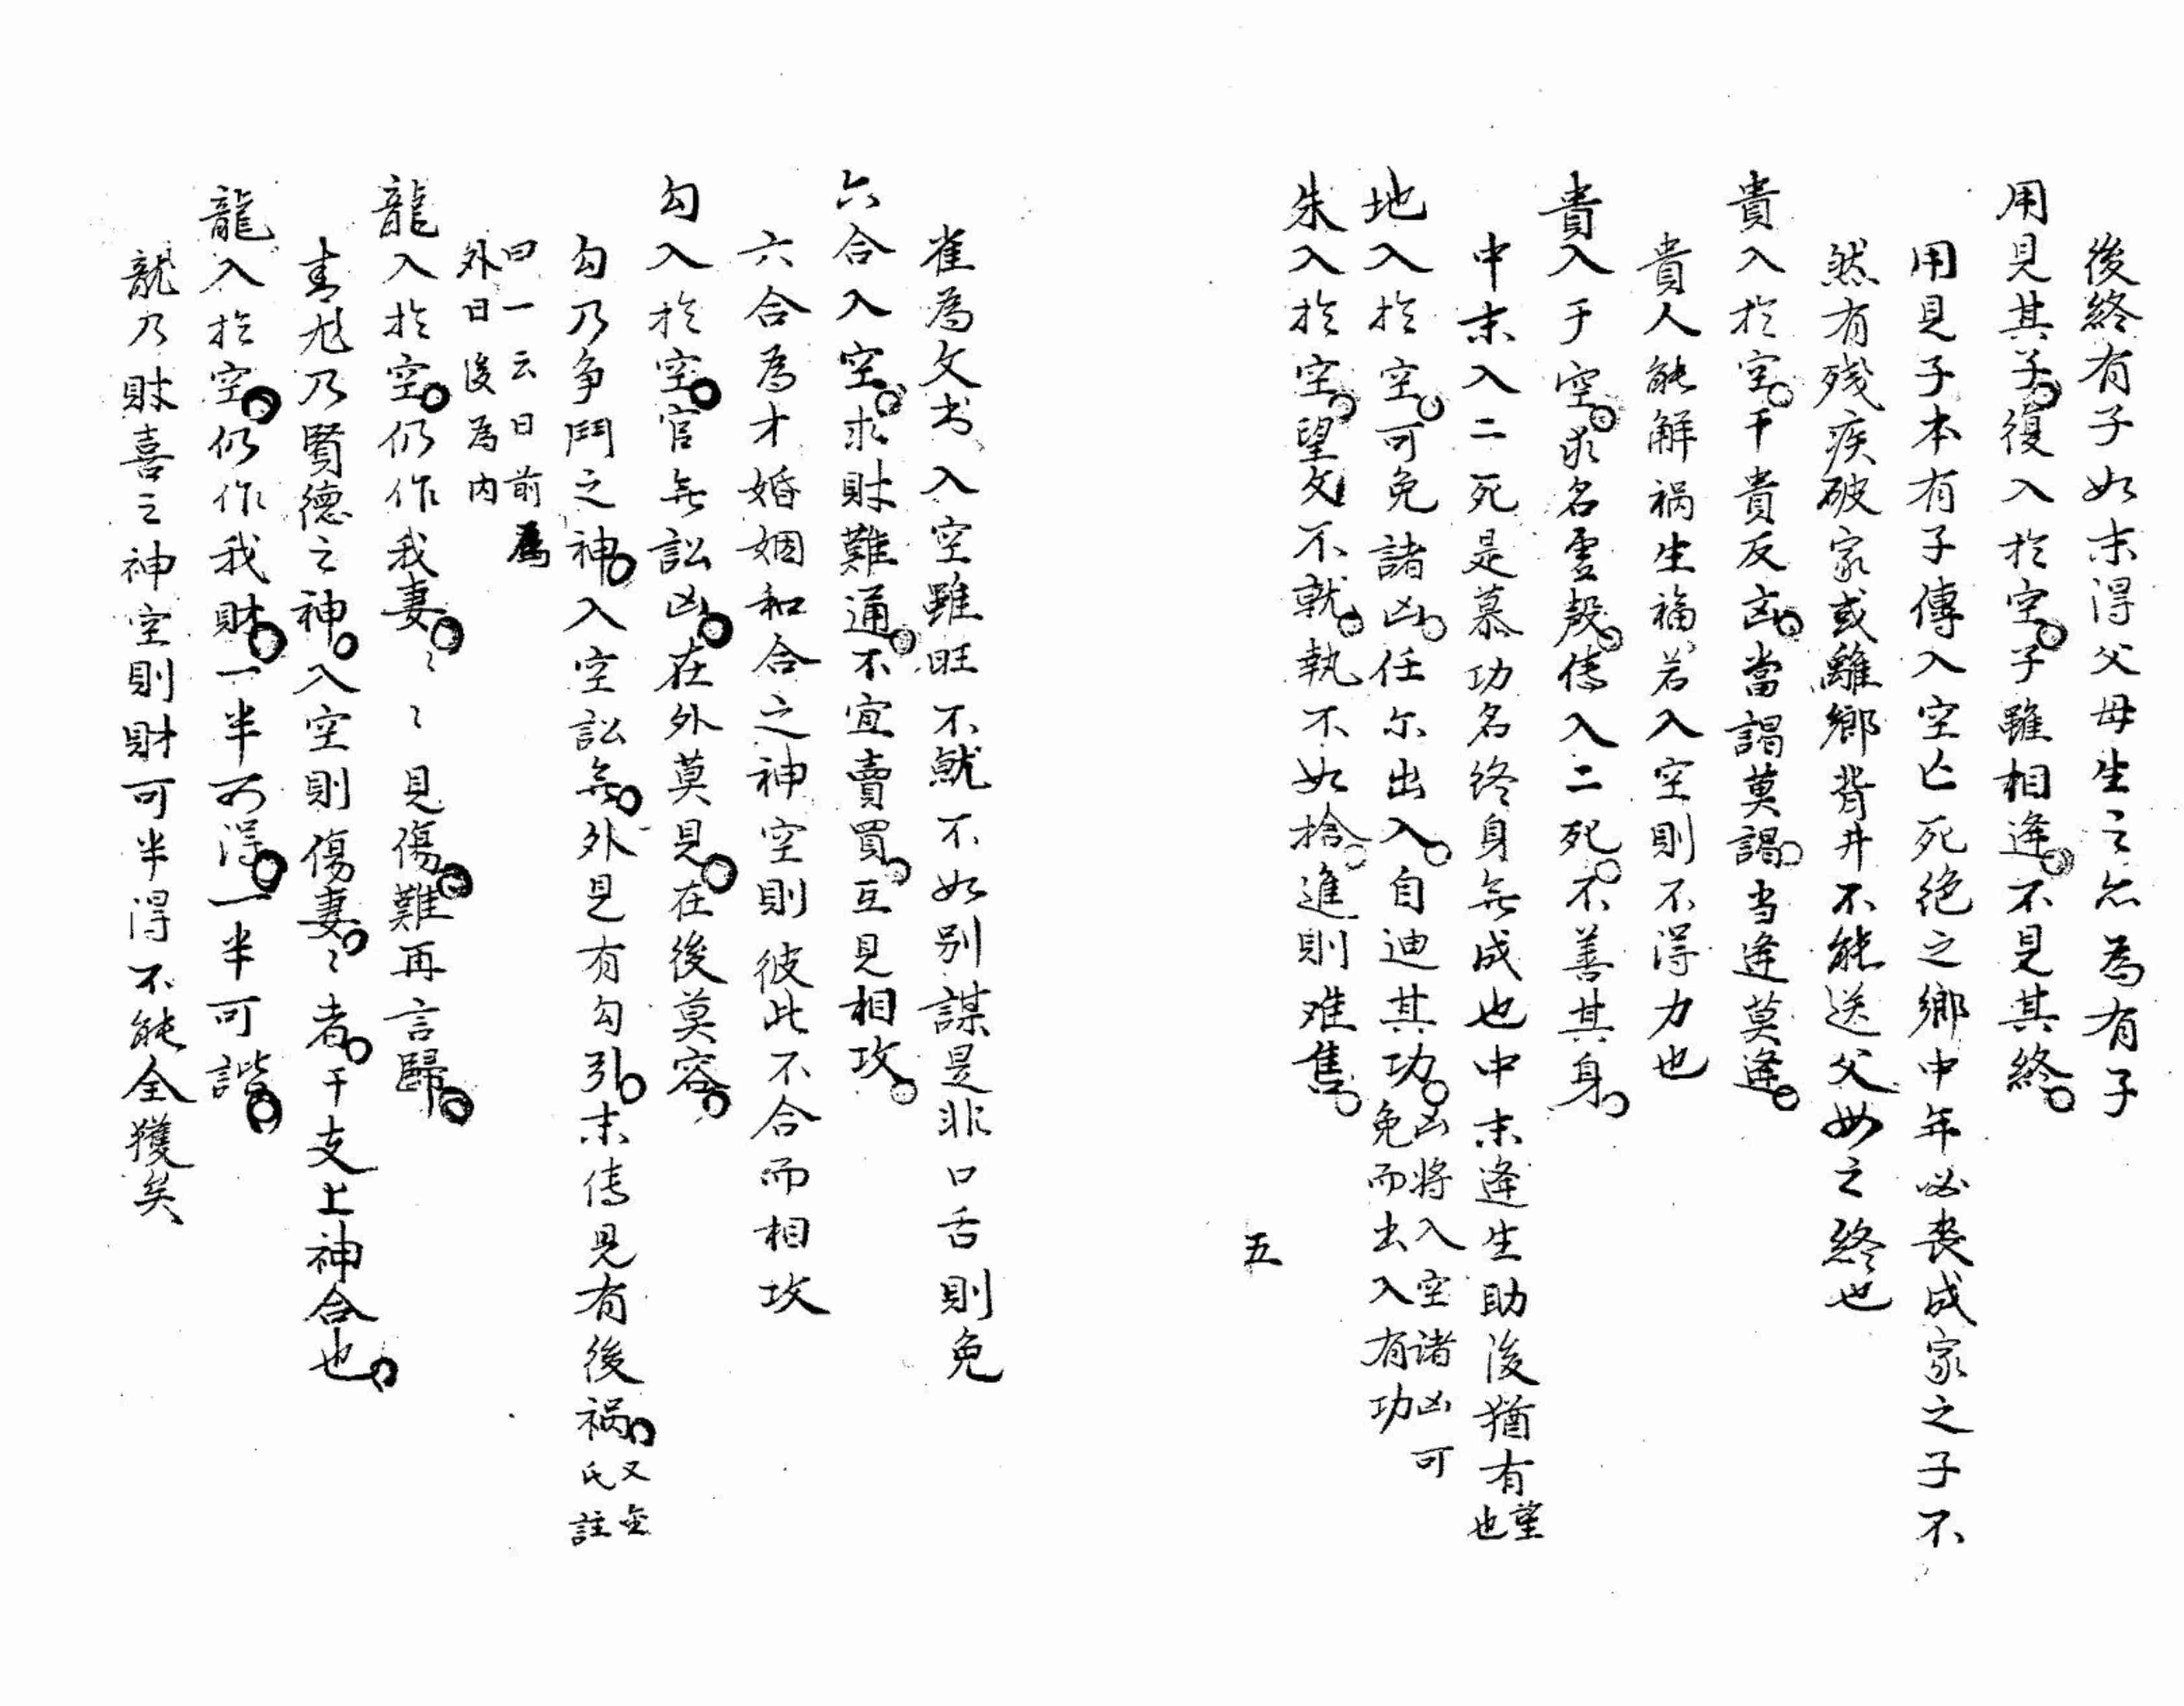 後終有子如末得父母生之亦為有子
用見其子。復入於空。子雖相逢。不見其終。
用見子本有子傳入空亡死絕之鄉中年必喪成家之子不
然有殘疾破家或離鄉背井不能送父母之終也
貴入於空。干貴反凶。當謁莫謁。当逢莫逢。
貴人能解禍生福若入空則不得力也
貴入于空。求名雲殷。傳入二死。不善其身。
中末入二死是慕功名終身無成也中末逢生助後猶有望
也
地入於空。可免諸凶。任尔出入。自迪其功。凶将入空諸凶可
免而出入有功
朱入於空。望文不就。執不如捨。進則难售。
五
雀為文书入空雖旺不就不如别謀是非口舌則免
六合入空。求財難通。不宜賣買。互見相攻。
六合為才婚姻和合之神空則彼此不合而相攻
勾入於空。官無訟凶。在外莫見。在後莫容。
勾乃争鬥之神。入空訟無。外見有勾引。末傳見有後禍。又金
氏註
曰一云日前為
外日後為内
龍入於空。仍作我妻。〻〻見傷。難再言歸。
青龙乃賢德之神。入空則傷妻。〻者。干支上神合也。
龍入於空。仍作我財。一半不得。一半可諧。
龍乃財喜之神空則財可半得不能全獲矣